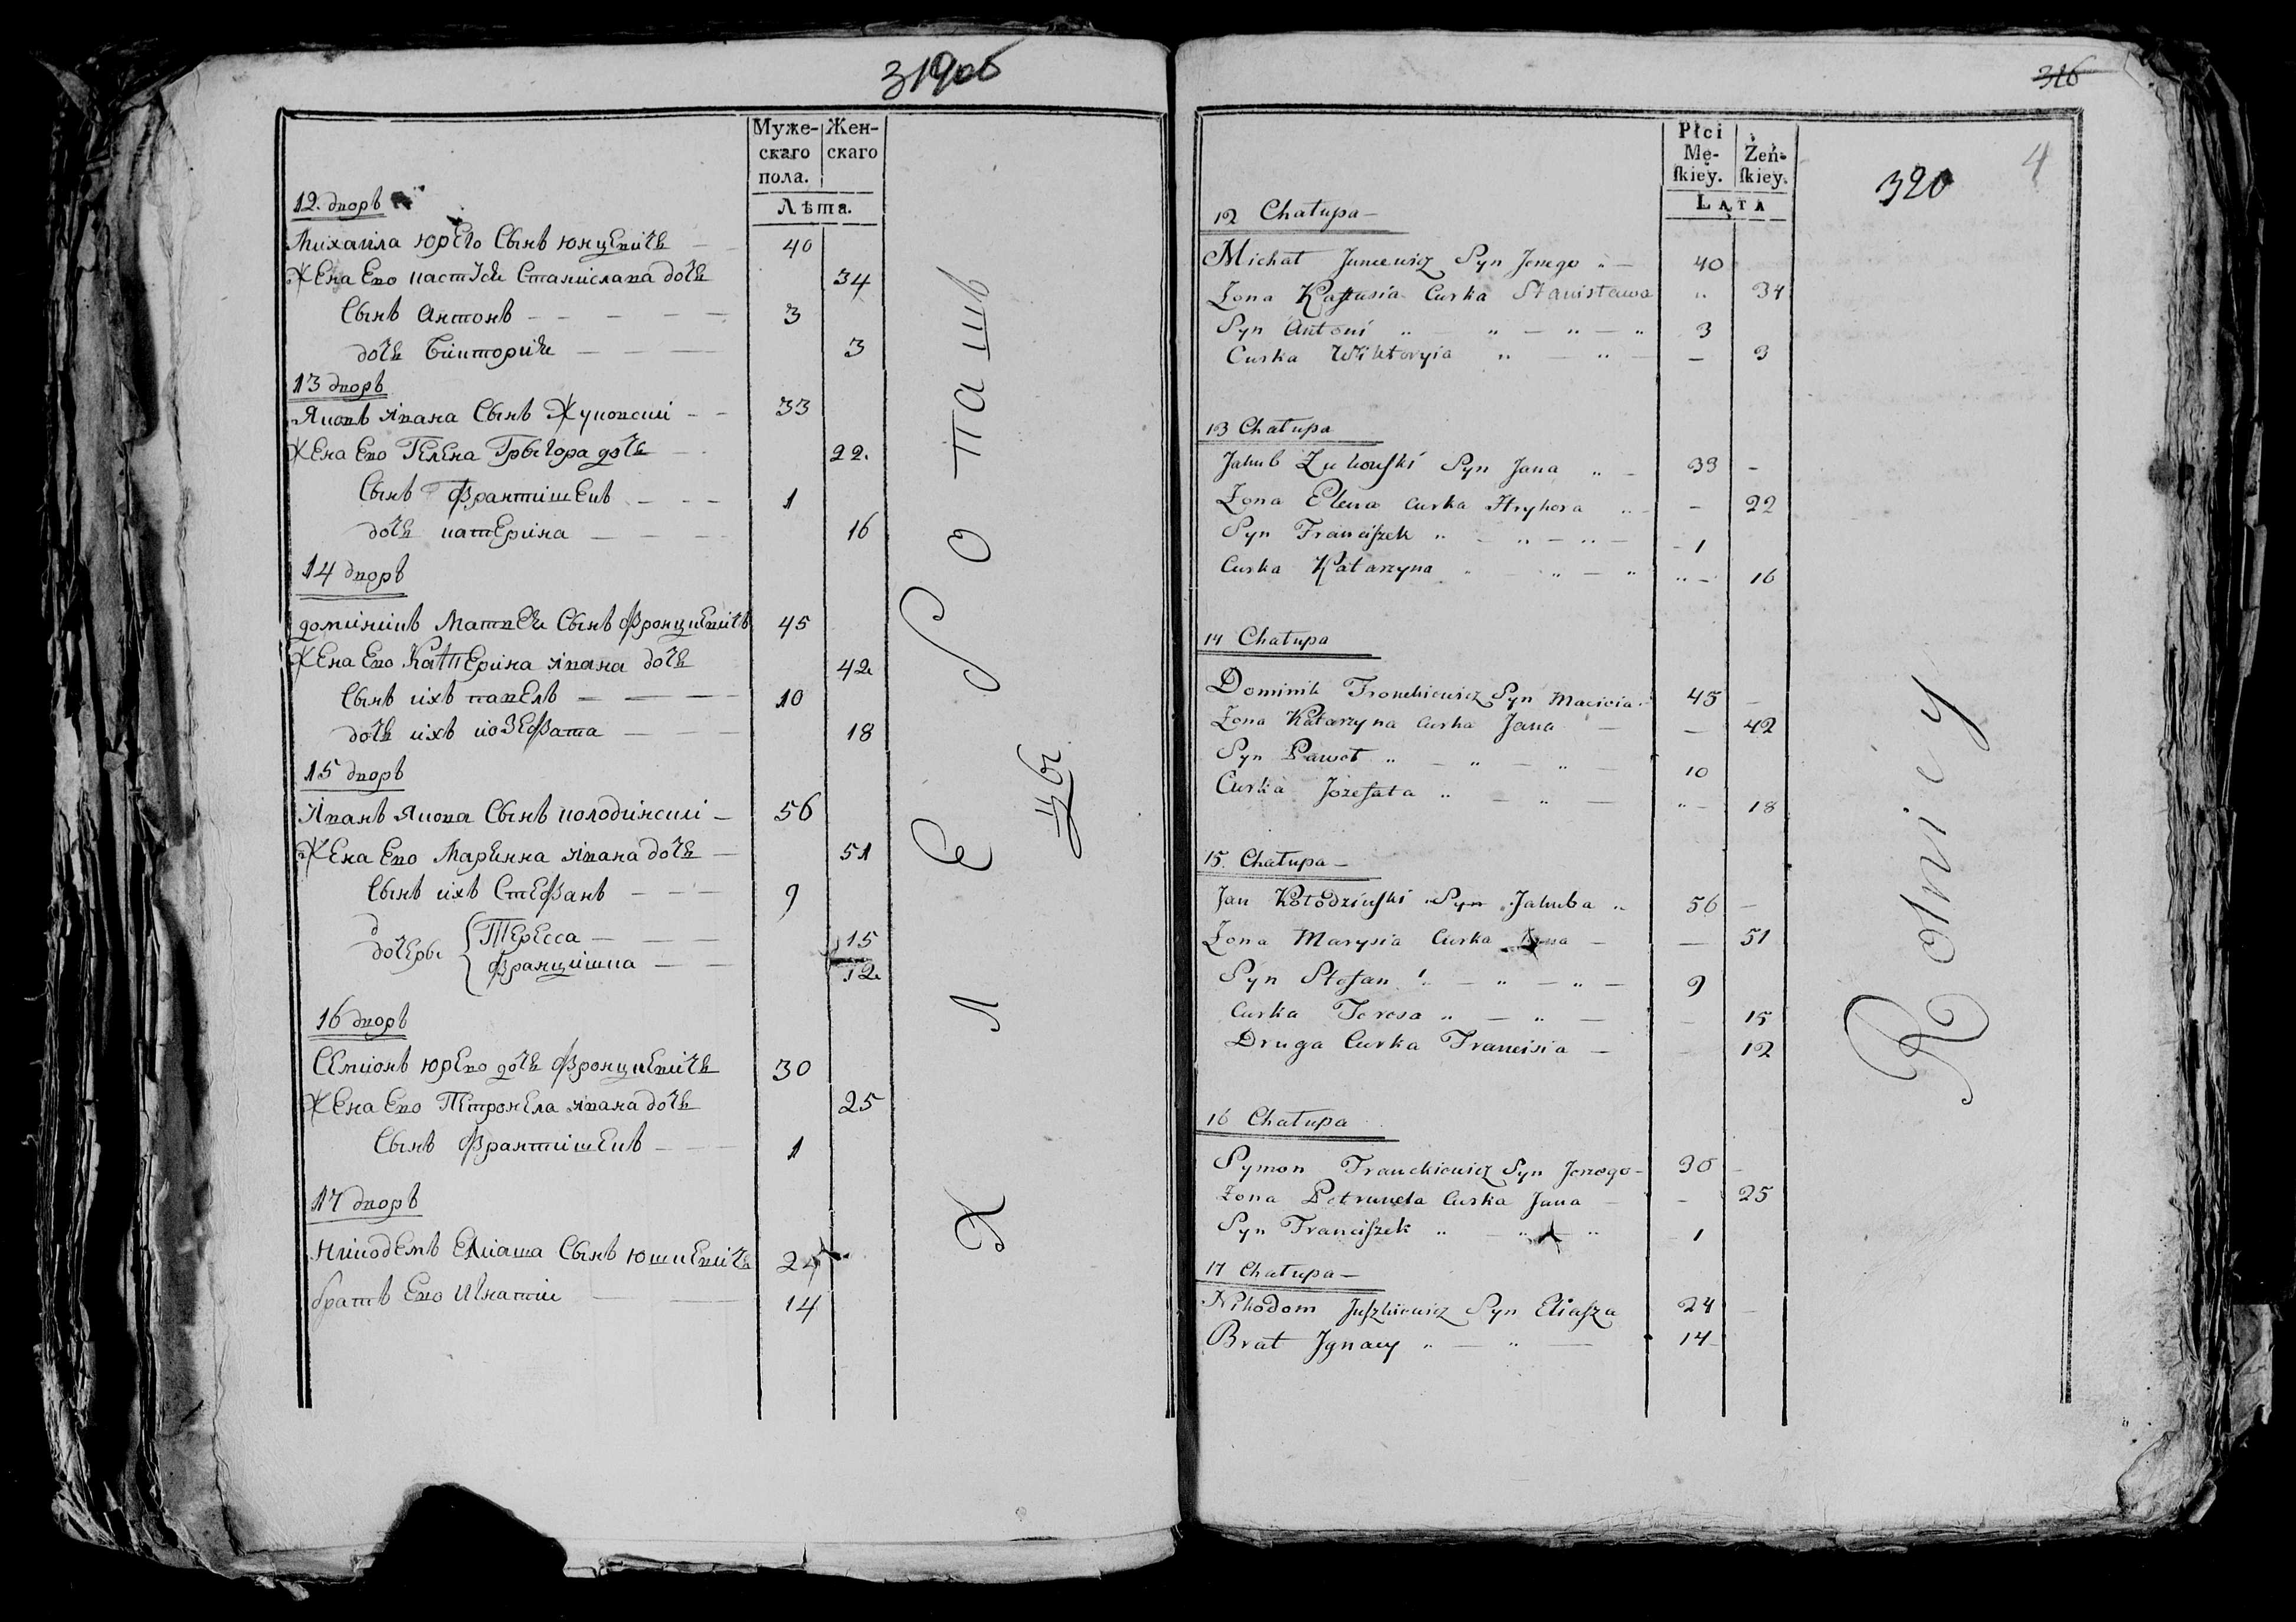 319об
Муже-
скаго
пола.
Жен-
скаго
Лѣта.
12. дворъ
Михаила юрего Сынъ юнцевичь 40
Жена Его кастуся Станислава дочь 34
Сынъ Антонъ 3
дочь Викторыя 3
13 дворъ
Яковъ івана Сынъ Жуковскі 33
Жена Его Гелена Грыгора дочь 22.
Сынъ Франтішекъ 1
дочь катерина 16
14 дворъ
домінікъ Матвея Сынъ Фронцкевичъ 45
Жена Его Катерина івана дочь 42
Сынъ ихъ павелъ 10
дочь ихъ іозефата 18
15 дворъ
Іванъ Якова Сынъ колодінскі 56
Жена Его Марына івана дочь 51
Сынъ ихъ Стефанъ 9
д
дочеры { Тересса 15
Францішка 12
16 дворъ
Семионъ юрево дочь Фронцкевичь 30
Жена Его Петронела івана дочь 25
Сынъ Франтішекъ 1
17 дворъ
Никодемъ Еліаша Сынъ юшкевичь 24
братъ Его Игнатіи 14
ХЛЕБОПАШ
цы
316
Płci
Mę-
ſkiey.
Żeń-
ſkiey.
LATA
320
4
12 Chałupa
Michał Juncewicz Syn Jerzego 40
Żona Kastusia Curka Stanisława 34
Syn Antoni 3
Curka Wiktoryia 3
13 Chałupa
Jakub Żukowſki Syn Jana 33
Żona Elena Curka Hryhora 22
Syn Franciſzek 1
Curka Katarzyna 16
14 Chałupa
Dominik Fronckiewicz Syn Macieia 45
Żona Katarzyna Curka Jana 42
Syn Paweł 10
Curka Jozefata 18
15. Chałupa
Jan Kołodzinſki Syn Jakuba 56
Żona Marysia Curka Jana 51
Syn Stefan 9
Curka Teresa 15
Druga Curka Francisia 12
16 Chałupa
Symon Franckiewicz Syn Jerzego 30
Żona Petrunela Curka Jana 25
Syn Franciſzek 1
17 Chałupa
Nikodom Juſzkiewicz Syn Eliaſza 24
Brat Jgnacy 14
Rolniey